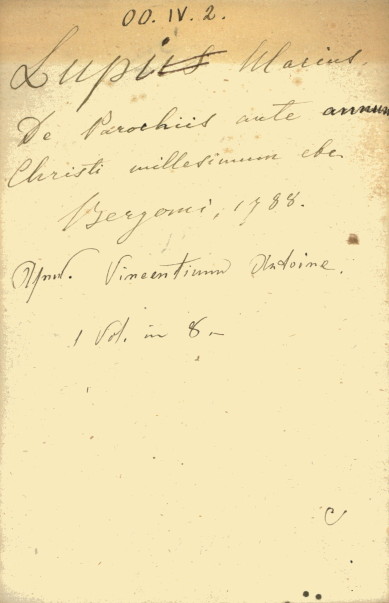 OO. IV. 2.
Lupius Marius.
De Parochiis ante annum
Christi millesimum etc.
Bergomi, 1788.
Apud. Vincentium Antoine.
1 Vol. in 8.-
C